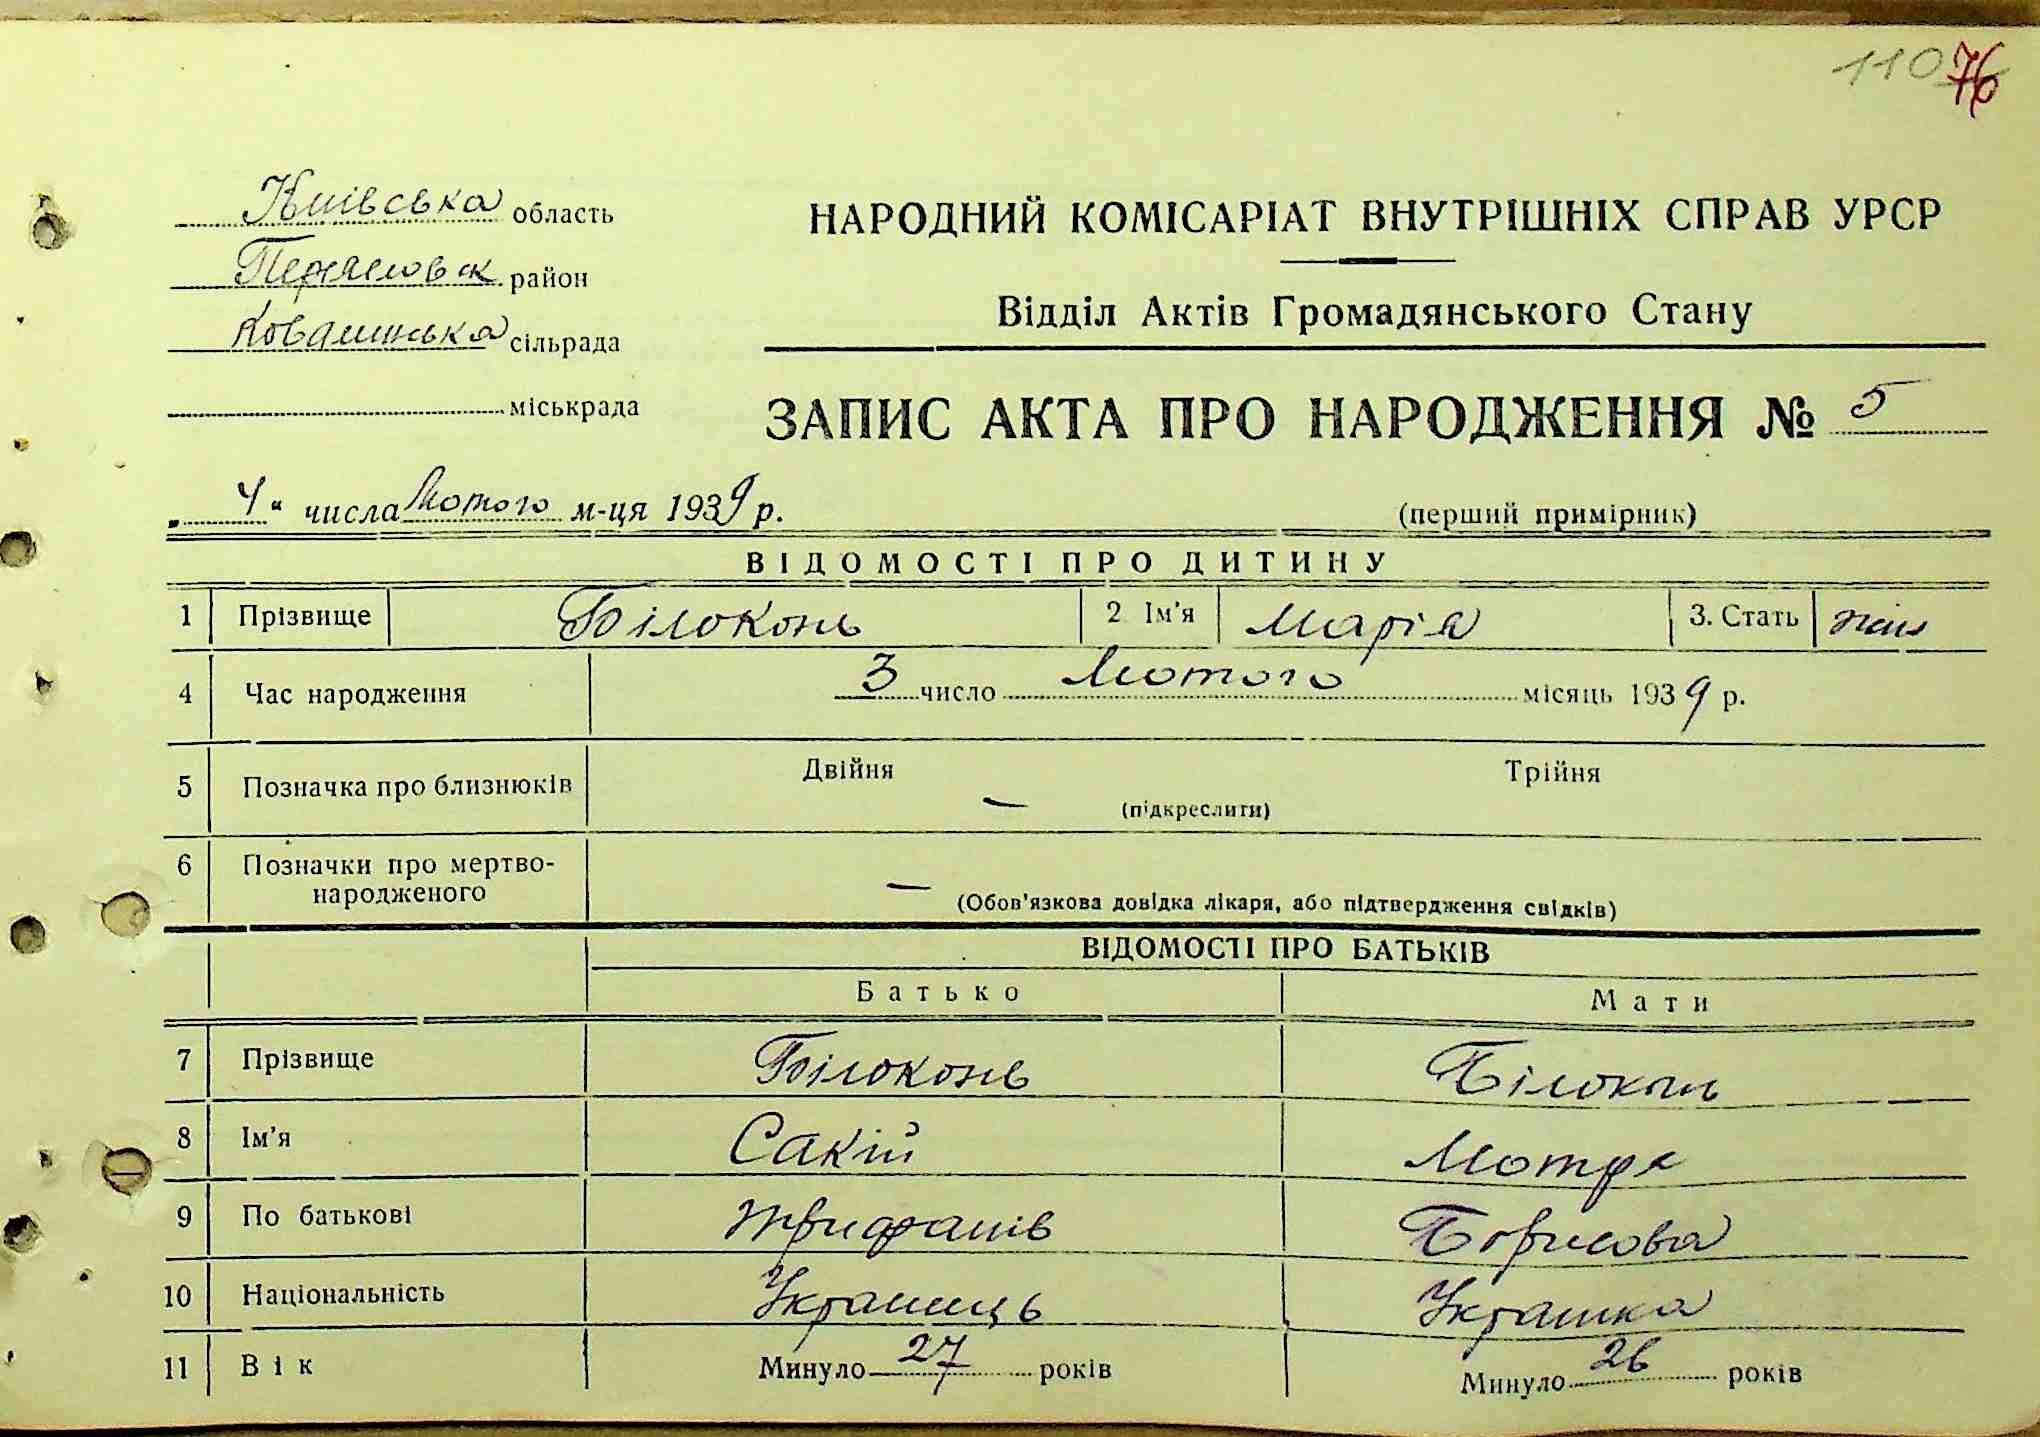 110 76
Київська область
Переяславськ район
Ковалинська сільрада
міськрада
НАРОДНИЙ КОМІСАРІАТ ВНУТРІШНІХ СПРАВ УРСР
Відділ Актів Громадянського Стану
ЗАПИС АКТА ПРО НАРОДЖЕННЯ № 5
„4“ числа Лютого м-ця 1939 р.
(перший примірник)
ВІДОМОСТІ ПРО ДИТИНУ
1 Прізвище Білоконь 2. Ім'я Марія 3. Стать жін
4 Час народження 3 число Лютого місяць 1939 р.
5 Позначка про близнюків Двійня Трійня
— (підкреслити)
6 Позначки про мертво-
народженого — (Обов'язкова довідка лікаря, або підтвердження свідків)
ВІДОМОСТІ ПРО БАТЬКІВ
Батько Мати
7 Прізвище Білоконь Білоконь
8 Ім'я Сакій Мотря
9 По батькові Трифанів Борисова
10 Національність Українець Українка
11 Вік Минуло 27 років Минуло 26 років